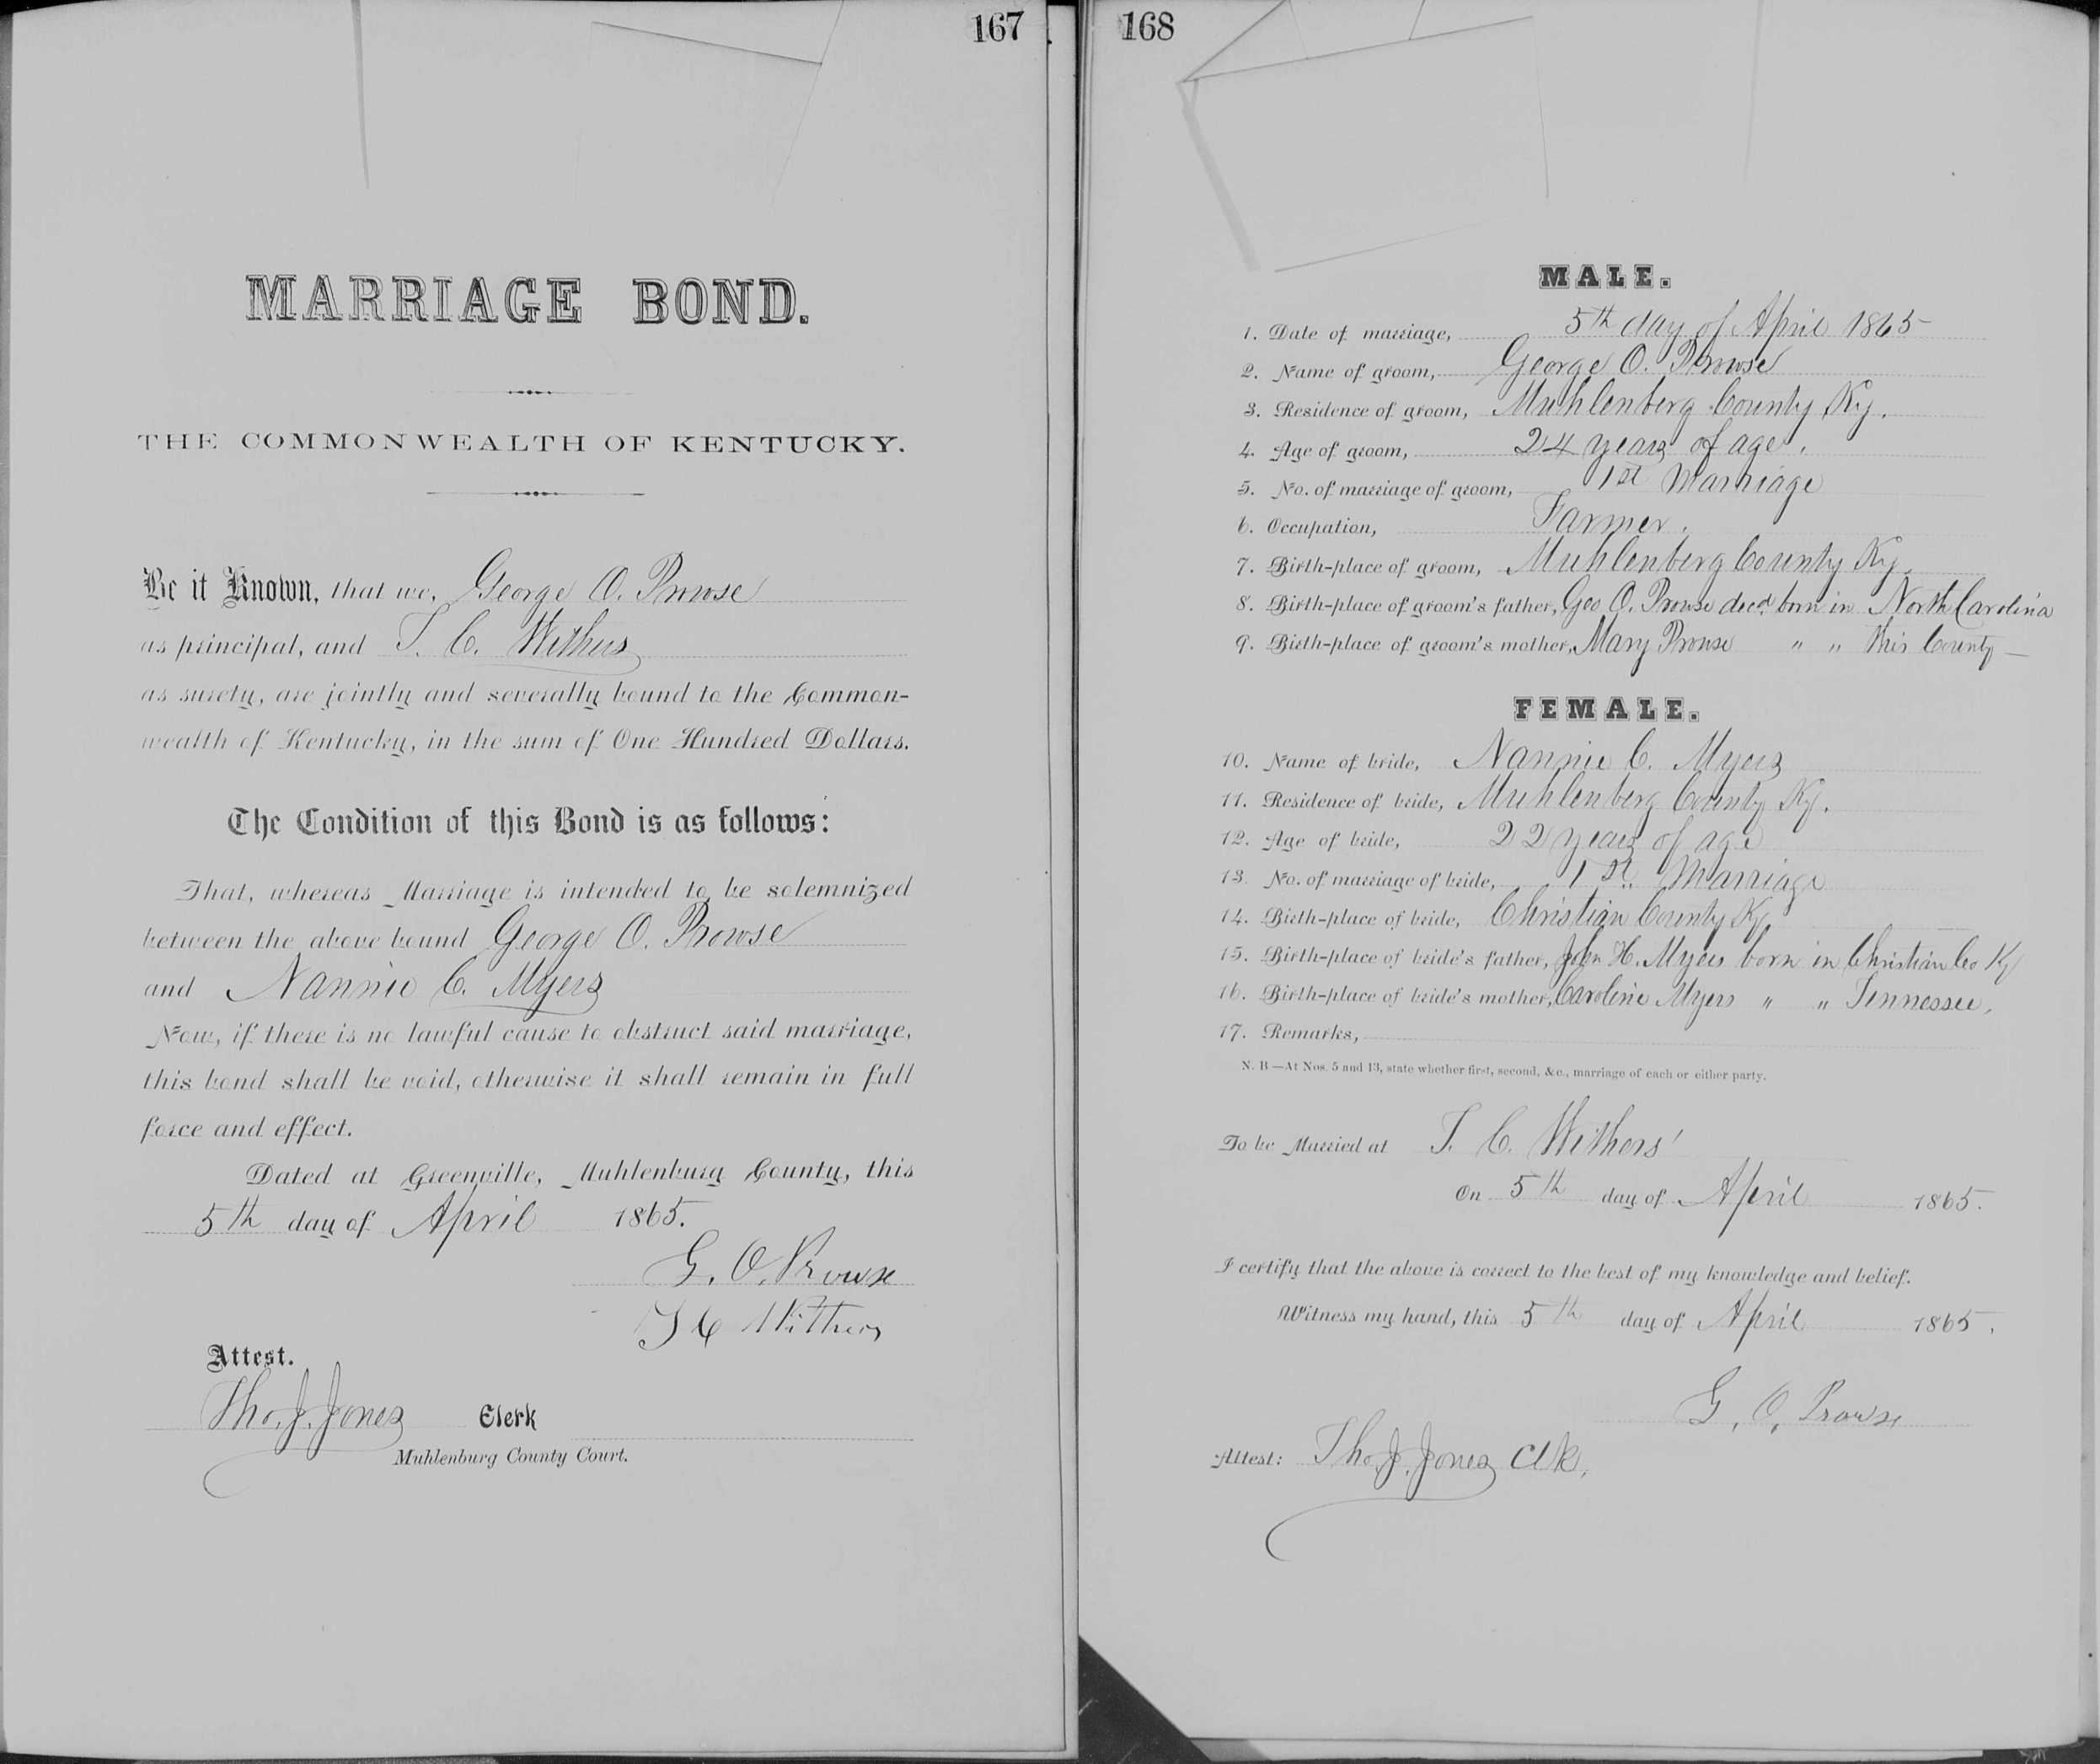 167
MARRIAGE BOND.
THE COMMONWEALTH OF KENTUCKY.
Be it Known, that we, George O. Prowse
as principal, and T. C. Withers
as surety, are jointly and severally bound to the Common-
wealth of Kentucky, in the sum of One Hundred Dollars.
The Condition of this Bond is as follows:
That, whereas Marriage is intended to be solemnized
between the above bound George O. Prowse
and Nannie C. Myers
Now, if there is no lawful cause to obstruct said marriage,
this bond shall be void, otherwise it shall remain in full
force and effect.
Dated at Greenville, Muhlenburg County, this
5th day of April 1865.
G. O. Prowse
T C Withers
Attest.
Tho. J. Jones Clerk
Muhlenburg County Court.
168
MALE.
1. Date of marriage, 5th day of April 1865
2. Name of groom, George O. Prowse
3. Residence of groom, Muhlenberg County Ky.
4. Age of groom, 24 years of age.
5. No. of marriage of groom, 1st Marriage
6. Occupation, Farmer.
7. Birth-place of groom, Muhlenberg County Ky.
8. Birth-place of groom's father, Geo O. Prowse decd. born in North Carolina
9. Birth-place of groom's mother, Mary Prowse " " this County —
FEMALE.
10. Name of bride, Nannie C. Myers
11. Residence of bride, Muhlenberg County Ky.
12. Age of bride, 22 years of age
13. No. of marriage of bride, 1st. Marriage
14. Birth-place of bride, Christian County Ky.
15. Birth-place of bride's father, John H. Myers born in Christian Co Ky
16. Birth-place of bride's mother, Caroline Myers " " Tennessee,
17. Remarks,
N. B—At Nos. 5 and 13, state whether first, second, &c., marriage of each or either party.
To be Married at T. C. Withers'
On 5th day of April 1865.
I certify that the above is correct to the best of my knowledge and belief.
Witness my hand, this 5th day of April 1865.
G. O. Prowse
Attest: Tho. J. Jones Clk.